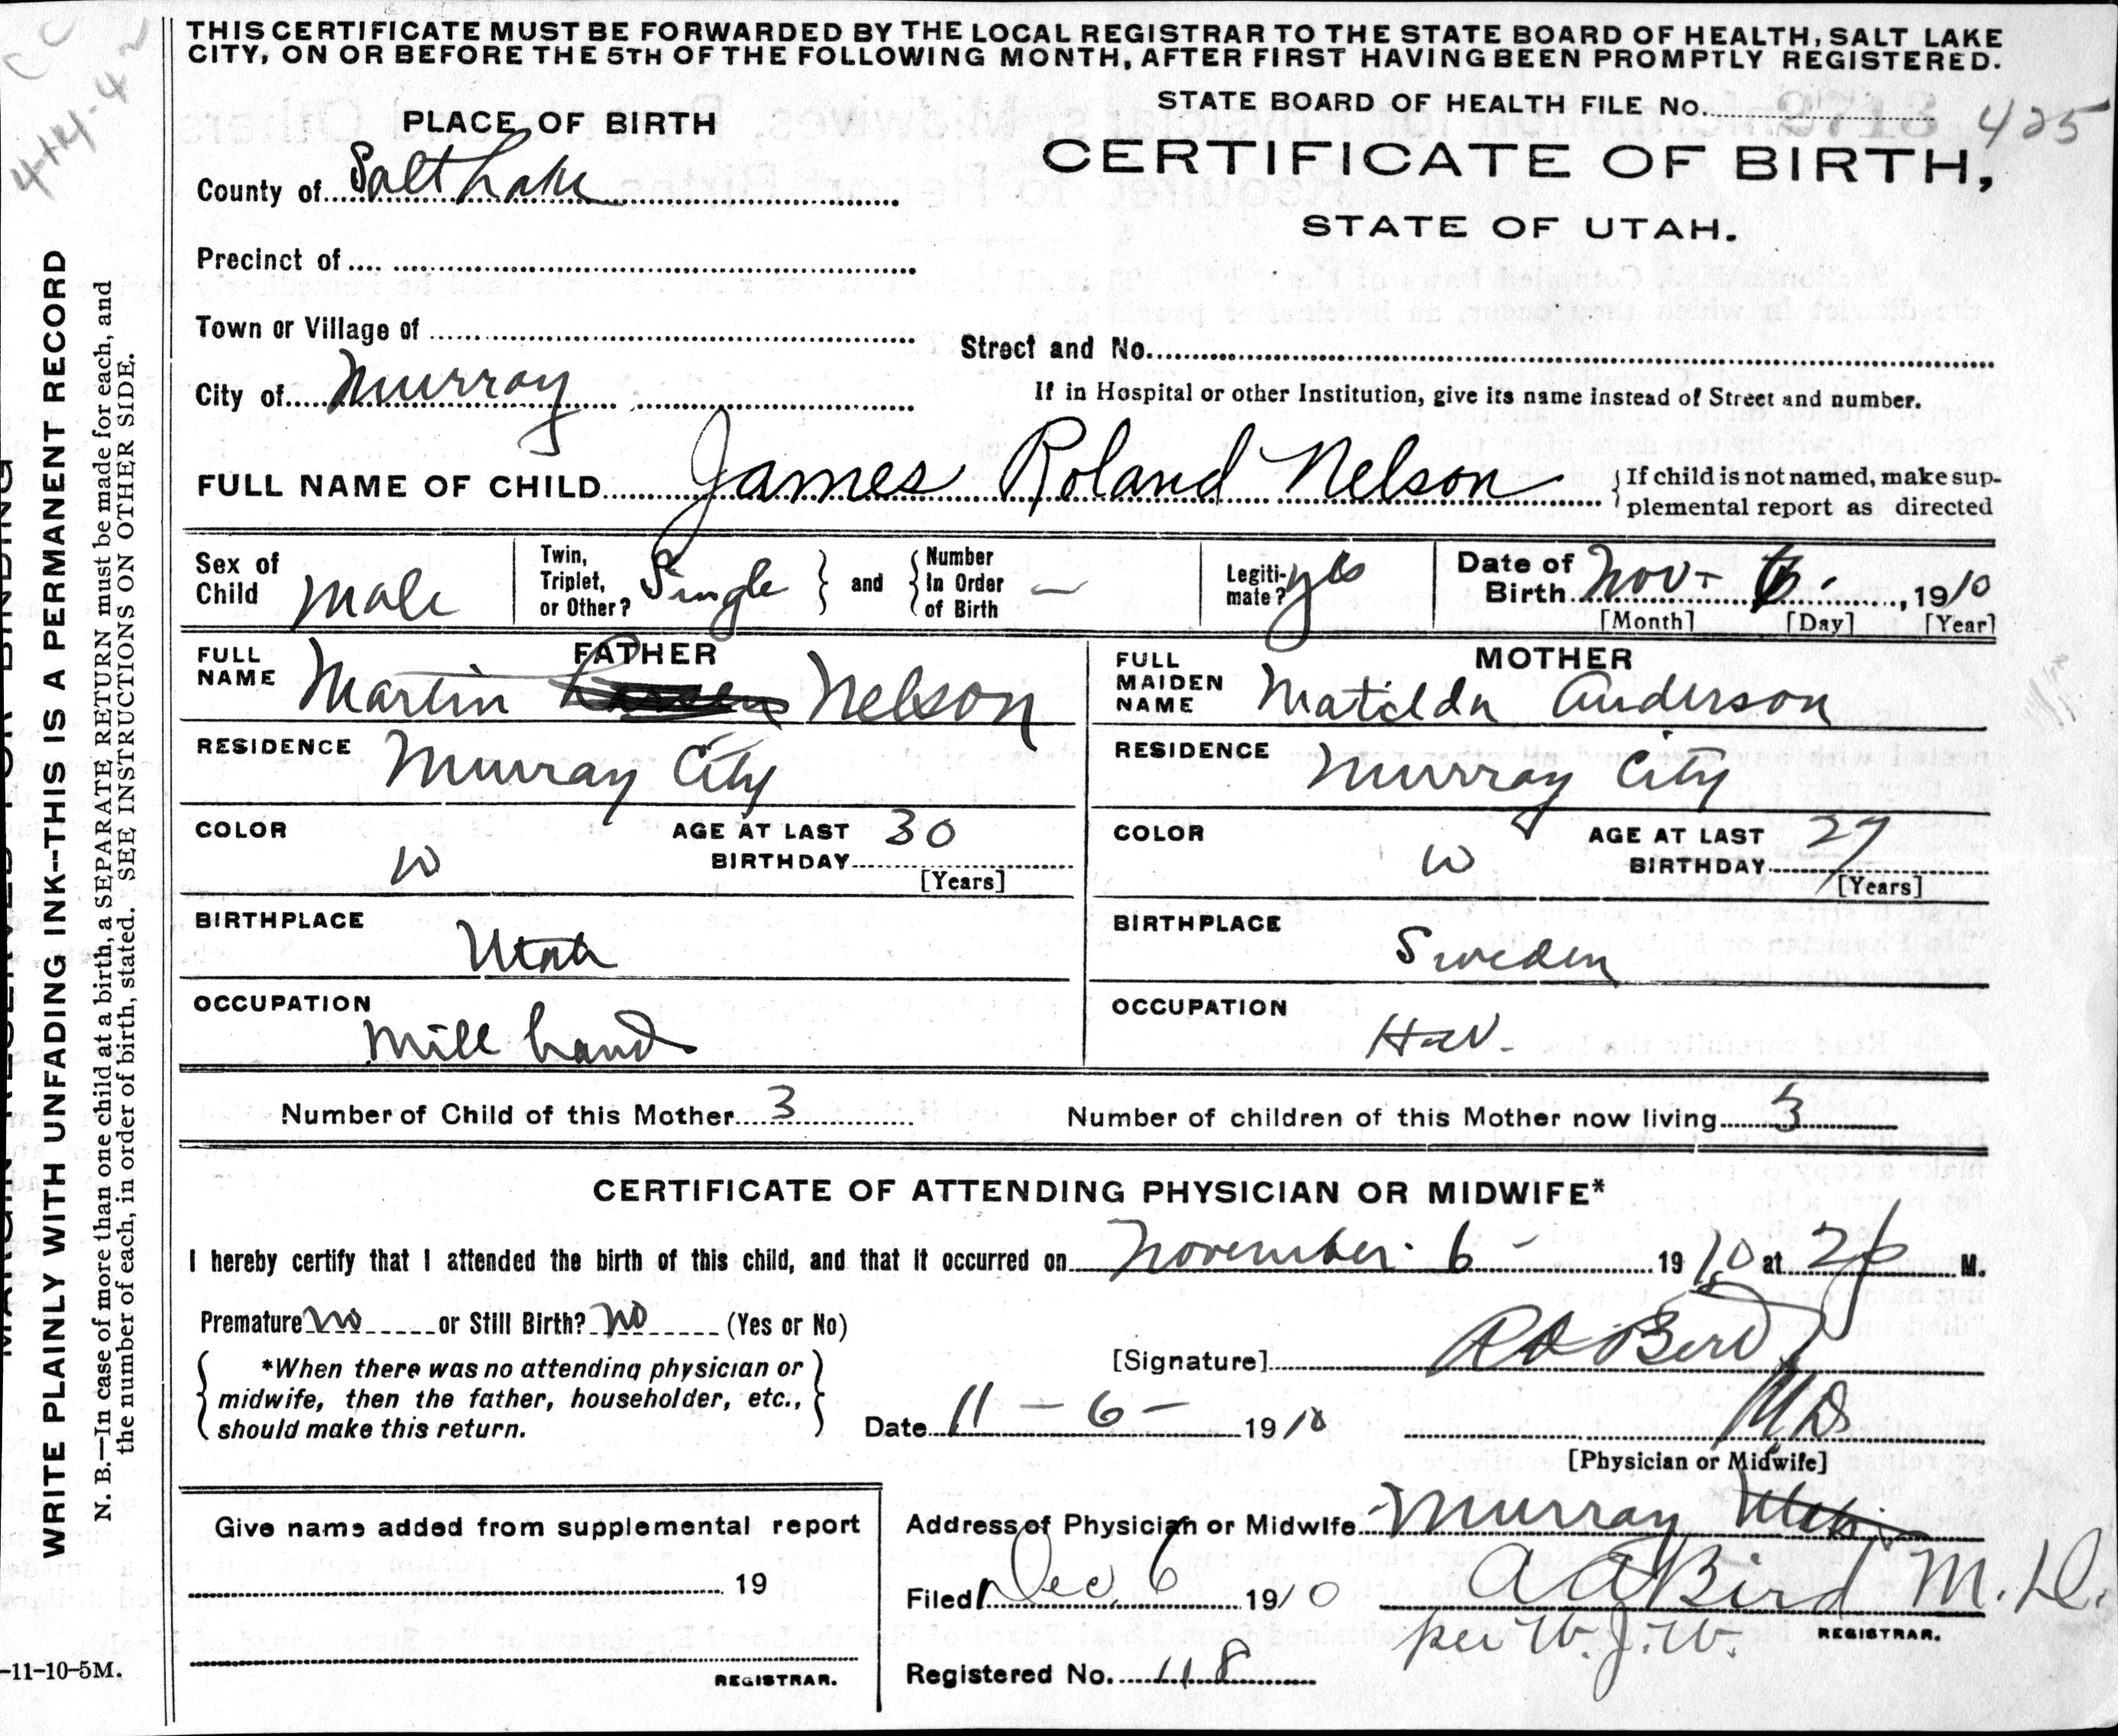 THIS CERTIFICATE MUST BE FORWARDED BY THE LOCAL REGISTRAR TO THE STATE BOARD OF HEALTH, SALT LAKE
CITY, ON OR BEFORE THE 5TH OF THE FOLLOWING MONTH, AFTER FIRST HAVING BEEN PROMPTLY REGISTERED.
STATE BOARD OF HEALTH FILE No. 425
CERTIFICATE OF BIRTH,
STATE OF UTAH.
PLACE OF BIRTH
County of Salt Lake
Precinct of
Town or Village of
Street and No.
City of Murray
If in Hospital or other Institution, give its name instead of Street and number.
FULL NAME OF CHILD James Roland Nelson
{If child is not named, make sup-
plemental report as directed
Sex of Child Male
Twin, Triplet, or Other? Single } and { Number In Order of Birth —
Legiti-mate? yes
Date of Birth Nov - 6 - , 1910
[Month] [Day] [Year]
FATHER
FULL NAME Martin Nelson
RESIDENCE Murray City
COLOR W AGE AT LAST BIRTHDAY 30
[Years]
BIRTHPLACE Utah
OCCUPATION Mill hand
MOTHER
FULL MAIDEN NAME Matilda Anderson
RESIDENCE Murray City
COLOR W AGE AT LAST BIRTHDAY 27
[Years]
BIRTHPLACE Sweden
OCCUPATION
Number of Child of this Mother 3 Number of children of this Mother now living 3
CERTIFICATE OF ATTENDING PHYSICIAN OR MIDWIFE*
I hereby certify that I attended the birth of this child, and that it occurred on November 6 - 1910 at M.
Premature no or Still Birth? no (Yes or No)
[Signature]
*When there was no attending physician or
midwife, then the father, householder, etc.,
should make this return.
Date 11 - 6 - 1910
MD
[Physician or Midwife]
Address of Physician or Midwife Murray Utah
Filed Dec 6 1910 A A Bird M.D.
per W. J. W. REGISTRAR.
Registered No. 118
Give name added from supplemental report
19
REGISTRAR.
WRITE PLAINLY WITH UNFADING INK--THIS IS A PERMANENT RECORD
N. B.—In case of more than one child at a birth, a SEPARATE RETURN must be made for each, and
the number of each, in order of birth, stated. SEE INSTRUCTIONS ON OTHER SIDE.
-11-10-5M.